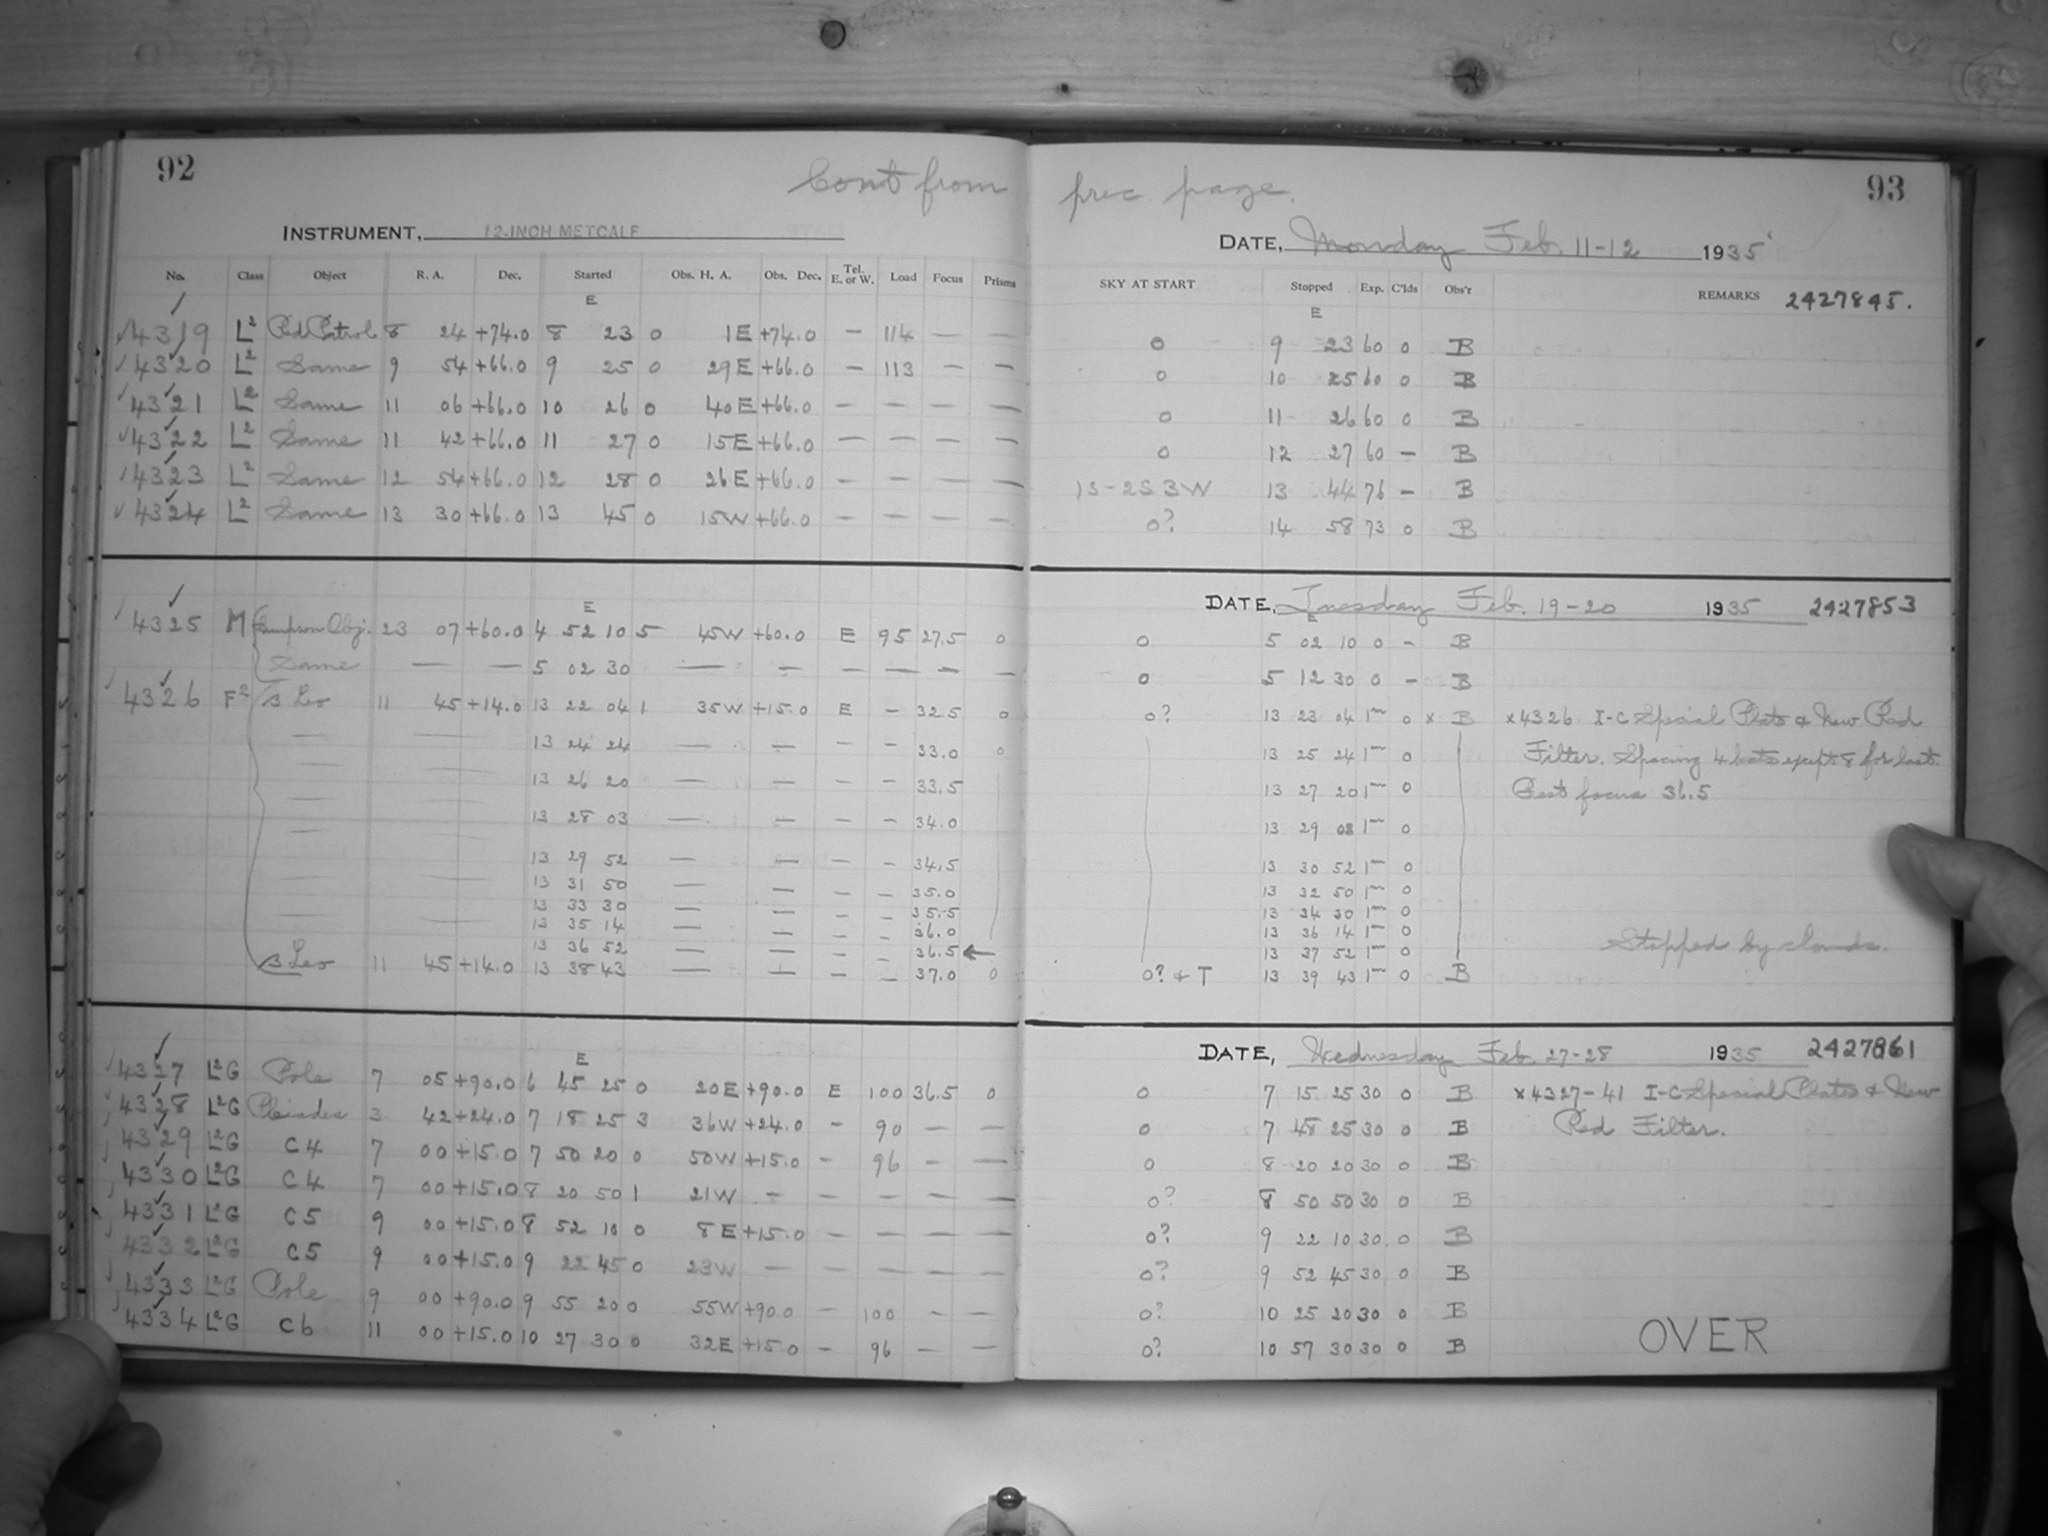 92
Cont from prec. page.
93
INSTRUMENT, 12-INCH METCALF
DATE, Monday Feb. 11-12 1935
No. Class Object R. A. Dec. Started Obs. H. A. Obs. Dec. Tel. E. or W. Load Focus Prisms SKY AT START Stopped Exp. C'lds Obs'r REMARKS 2427845.
E E
4319 L2 Red Patrol 8 24 +74.0 8 23 0 1E +74.0 — 114 — — 0 9 23 60 0 B
4320 L2 Same 9 54 +66.0 9 25 0 29E +66.0 — 113 — — 0 10 25 60 0 B
4321 L2 Same 11 06 +66.0 10 26 0 40E +66.0 — — — — 0 11 26 60 0 B
4322 L2 Same 11 42 +66.0 11 27 0 15E +66.0 — — — — 0 12 27 60 — B
4323 L2 Same 12 54 +66.0 12 28 0 26E +66.0 — — — — 1S-2S 3W 13 44 76 — B
4324 L2 Same 13 30 +66.0 13 45 0 15W +66.0 — — — — 0? 14 58 73 0 B
DATE, Tuesday Feb. 19-20 1935 2427853
E E
4325 M Obj. 23 07 +60.0 4 52 10 5 45W +60.0 E 95 27.5 0 0 5 02 10 0 — B
Same — — 5 02 30 — — — — — — 0 5 12 30 0 — B
4326 F2 B Leo 11 45 +14.0 13 22 04 1 35W +15.0 E — 32.5 0 0? 13 23 04 1m 0 x B x4326 I-C Special Plate & New Red
— — 13 24 24 — — — — 33.0 0 13 25 24 1m 0 Filter. Spacing 4 except 8 for last.
— — 13 26 20 — — — — 33.5 13 27 20 1m 0 Best focus 36.5
— — 13 28 03 — — — — 34.0 13 29 03 1m 0
— — 13 29 52 — — — — 34.5 13 30 52 1m 0
— — 13 31 50 — — — — 35.0 13 32 50 1m 0
13 33 30 — — — — 35.5 13 34 30 1m 0
— — 13 35 14 — — — — 36.0 13 36 14 1m 0
13 36 52 — — — — 36.5 ← 13 37 52 1m 0 Stopped by clouds.
B Leo 11 45 +14.0 13 38 43 — — — — 37.0 0 0? & T 13 39 43 1m 0 B
DATE, Wednesday Feb. 27-28 1935 2427861
E
4327 L2G Pole 7 05 +90.0 6 45 25 0 20E +90.0 E 100 36.5 0 0 7 15 25 30 0 B x4327-41 I-C Special Plates & New
4328 L2G Pleiades 3 42 +24.0 7 18 25 3 36W +24.0 — 90 — — 0 7 48 25 30 0 B Red Filter.
4329 L2G C4 7 00 +15.0 7 50 20 0 50W +15.0 — 96 — — 0 8 20 20 30 0 B
4330 L2G C4 7 00 +15.0 8 20 50 1 21W — — — — — 0? 8 50 50 30 0 B
4331 L2G C5 9 00 +15.0 8 52 10 0 8E +15.0 — — — — 0? 9 22 10 30 0 B
4332 L2G C5 9 00 +15.0 9 22 45 0 23W — — — — — 0? 9 52 45 30 0 B
4333 L2G Pole 9 00 +90.0 9 55 20 0 55W +90.0 — 100 — — 0? 10 25 20 30 0 B
4334 L2G C6 11 00 +15.0 10 27 30 0 32E +15.0 — 96 — — 0? 10 57 30 30 0 B
OVER